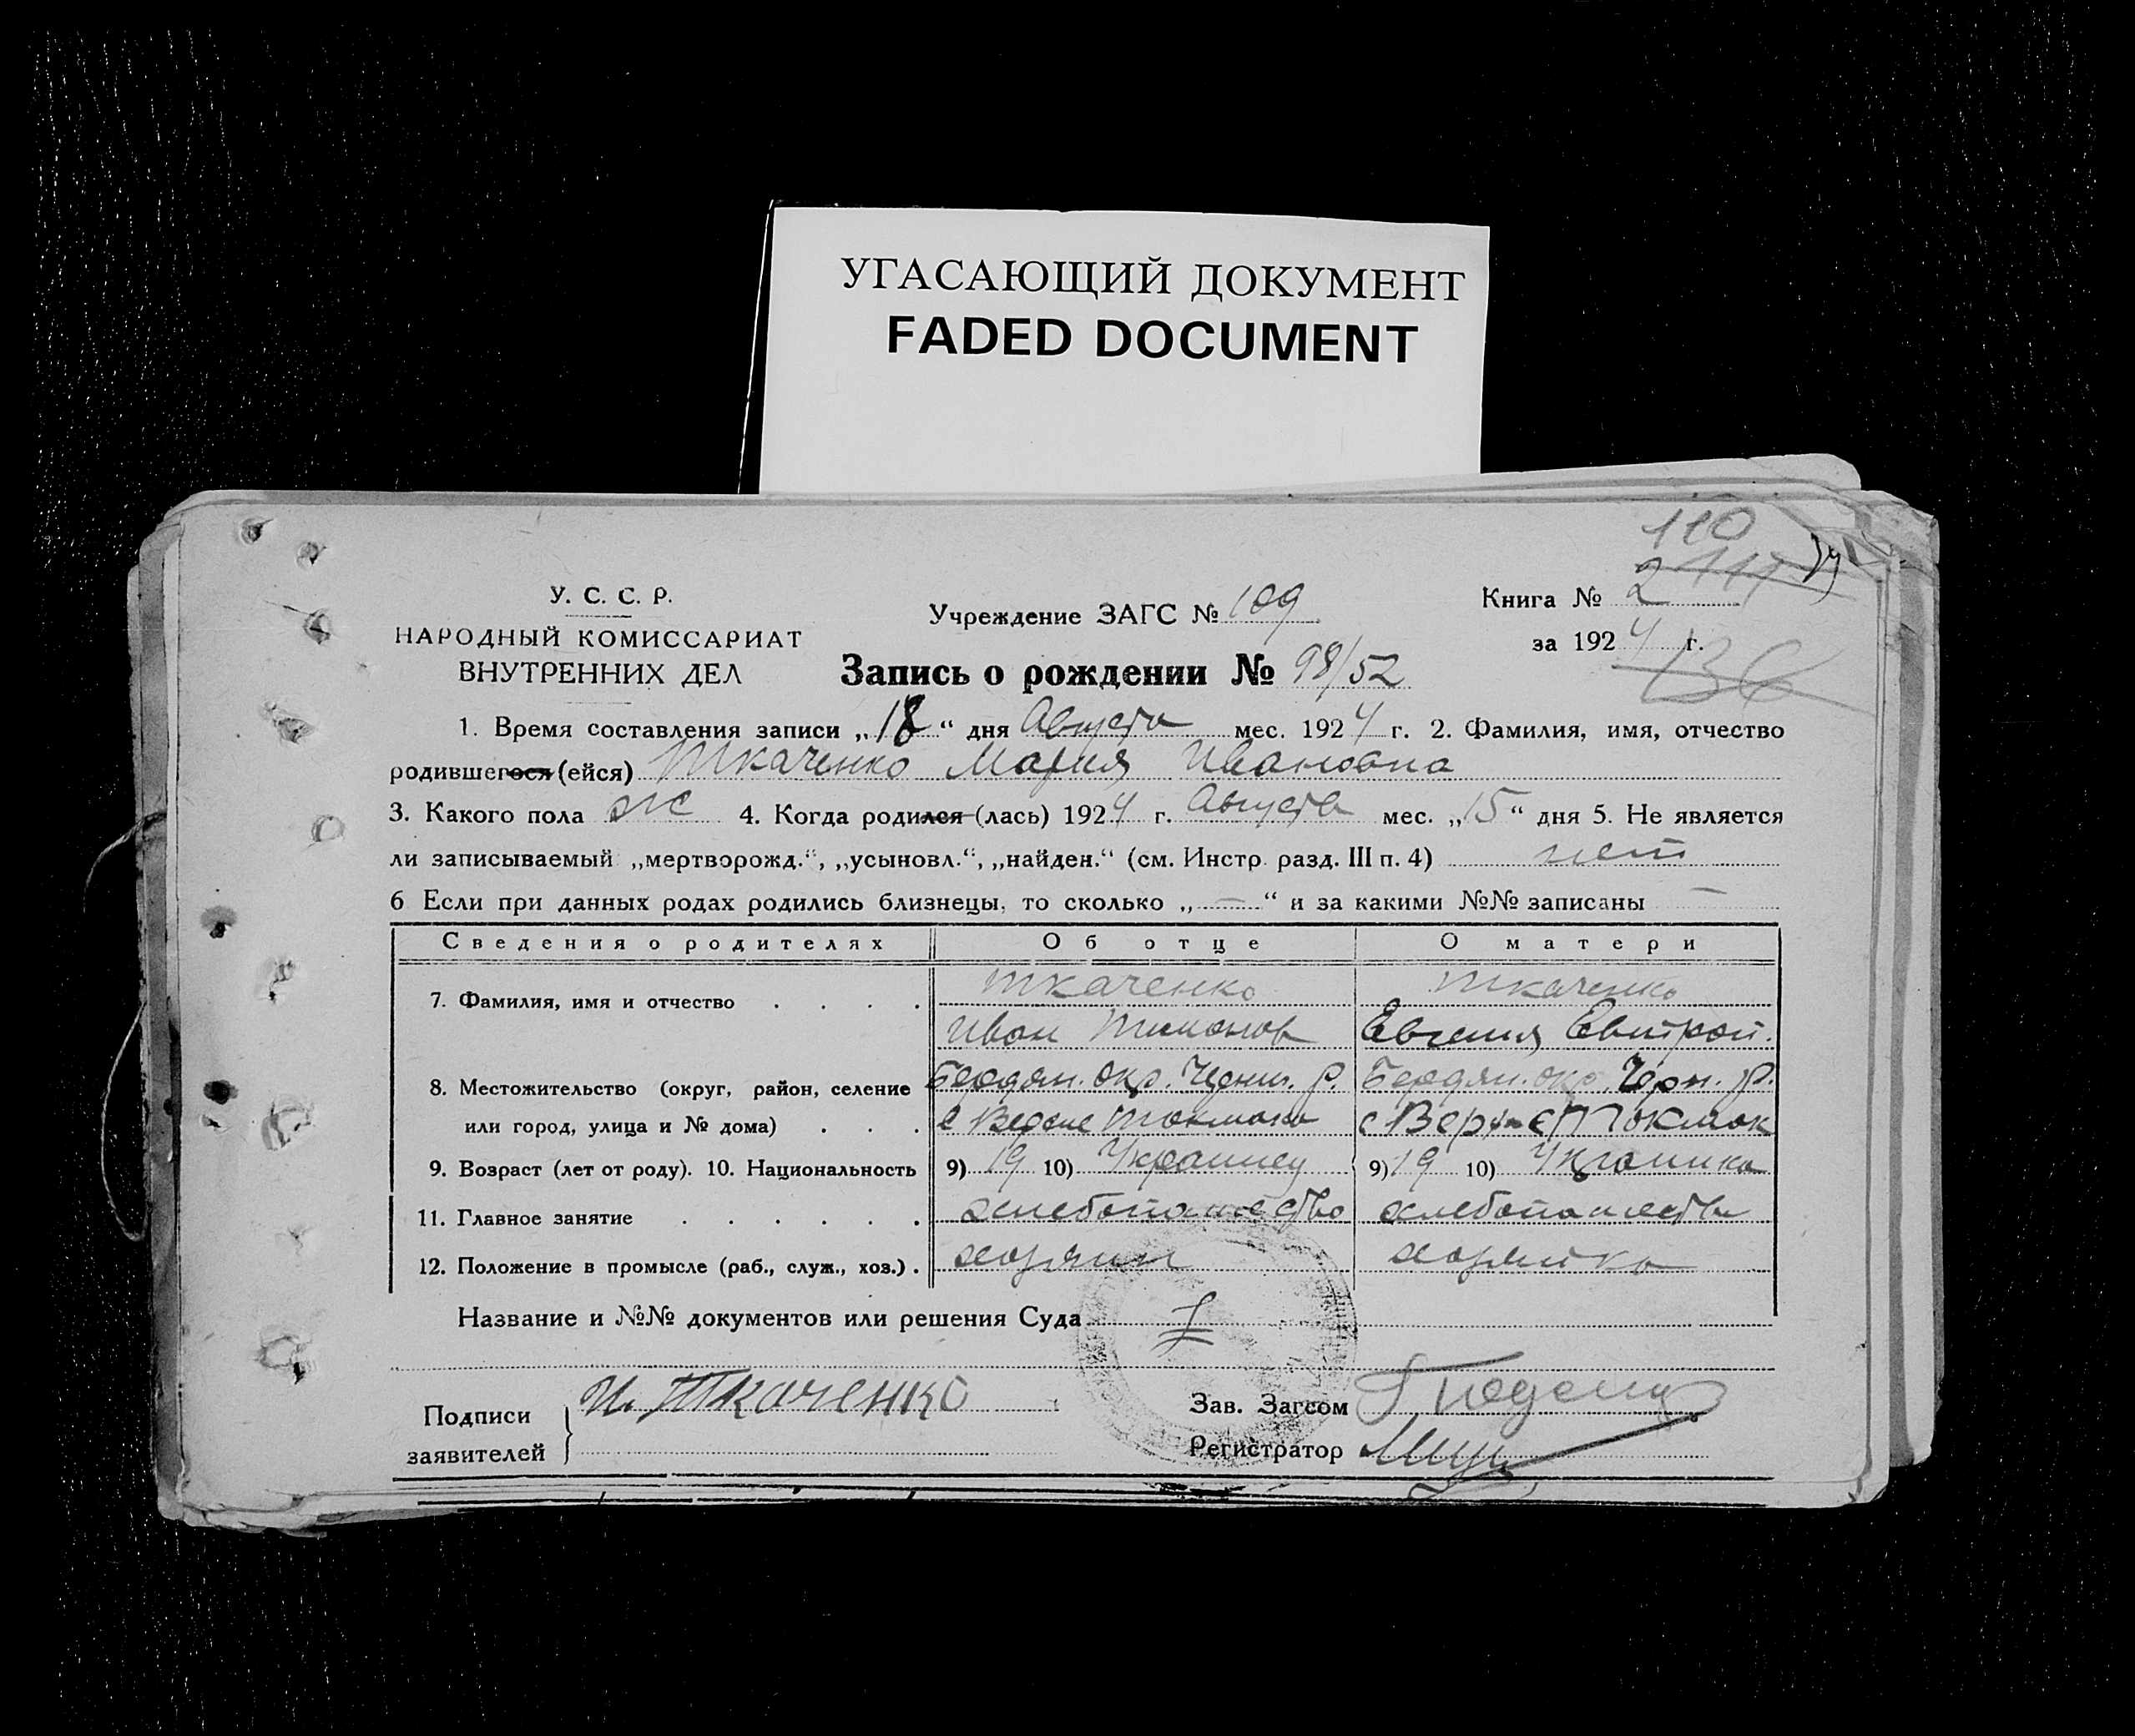 УГАСАЮЩИЙ ДОКУМЕНТ
FADED DOCUMENT
110
У. С. С. Р.
НАРОДНЫЙ КОМИССАРИАТ
ВНУТРЕННИХ ДЕЛ
Учреждение ЗАГС № 109
Книга № 2
за 1924 г.
136
Запись о рождении № 98/52
1. Время составления записи „18“ дня Августа мес. 1924 г. 2. Фамилия, имя, отчество
родившегося (ейся) Ткаченко Мария Ивановна
3. Какого пола ж 4. Когда родился (лась) 1924 г. Августа мес. „15“ дня 5. Не является
ли записываемый „мертворожд.“, „усыновл.“, „найден.“ (см. Инстр. разд. III п. 4) нет
6 Если при данных родах родились близнецы, то сколько „—“ и за какими №№ записаны —
Сведения о родителях Об отце О матери
7. Фамилия, имя и отчество . . . . Ткаченко Ткаченко
Иван Тимонов Евгения
8. Местожительство (округ, район, селение Бердян. окр. Черн. р. Бердян. окр. Черн. р.
или город, улица и № дома) . . . с Верхне Токмак
9. Возраст (лет от роду). 10. Национальность 9) 19 10) Украинец 9) 19 10) Украинка
11. Главное занятие . . . . . . хлебопашество хлебопашество
12. Положение в промысле (раб., служ., хоз.) . хозяин хозяйка
Название и №№ документов или решения Суда
Подписи
заявителей
И. Ткаченко
Зав. Загсом
Регистратор